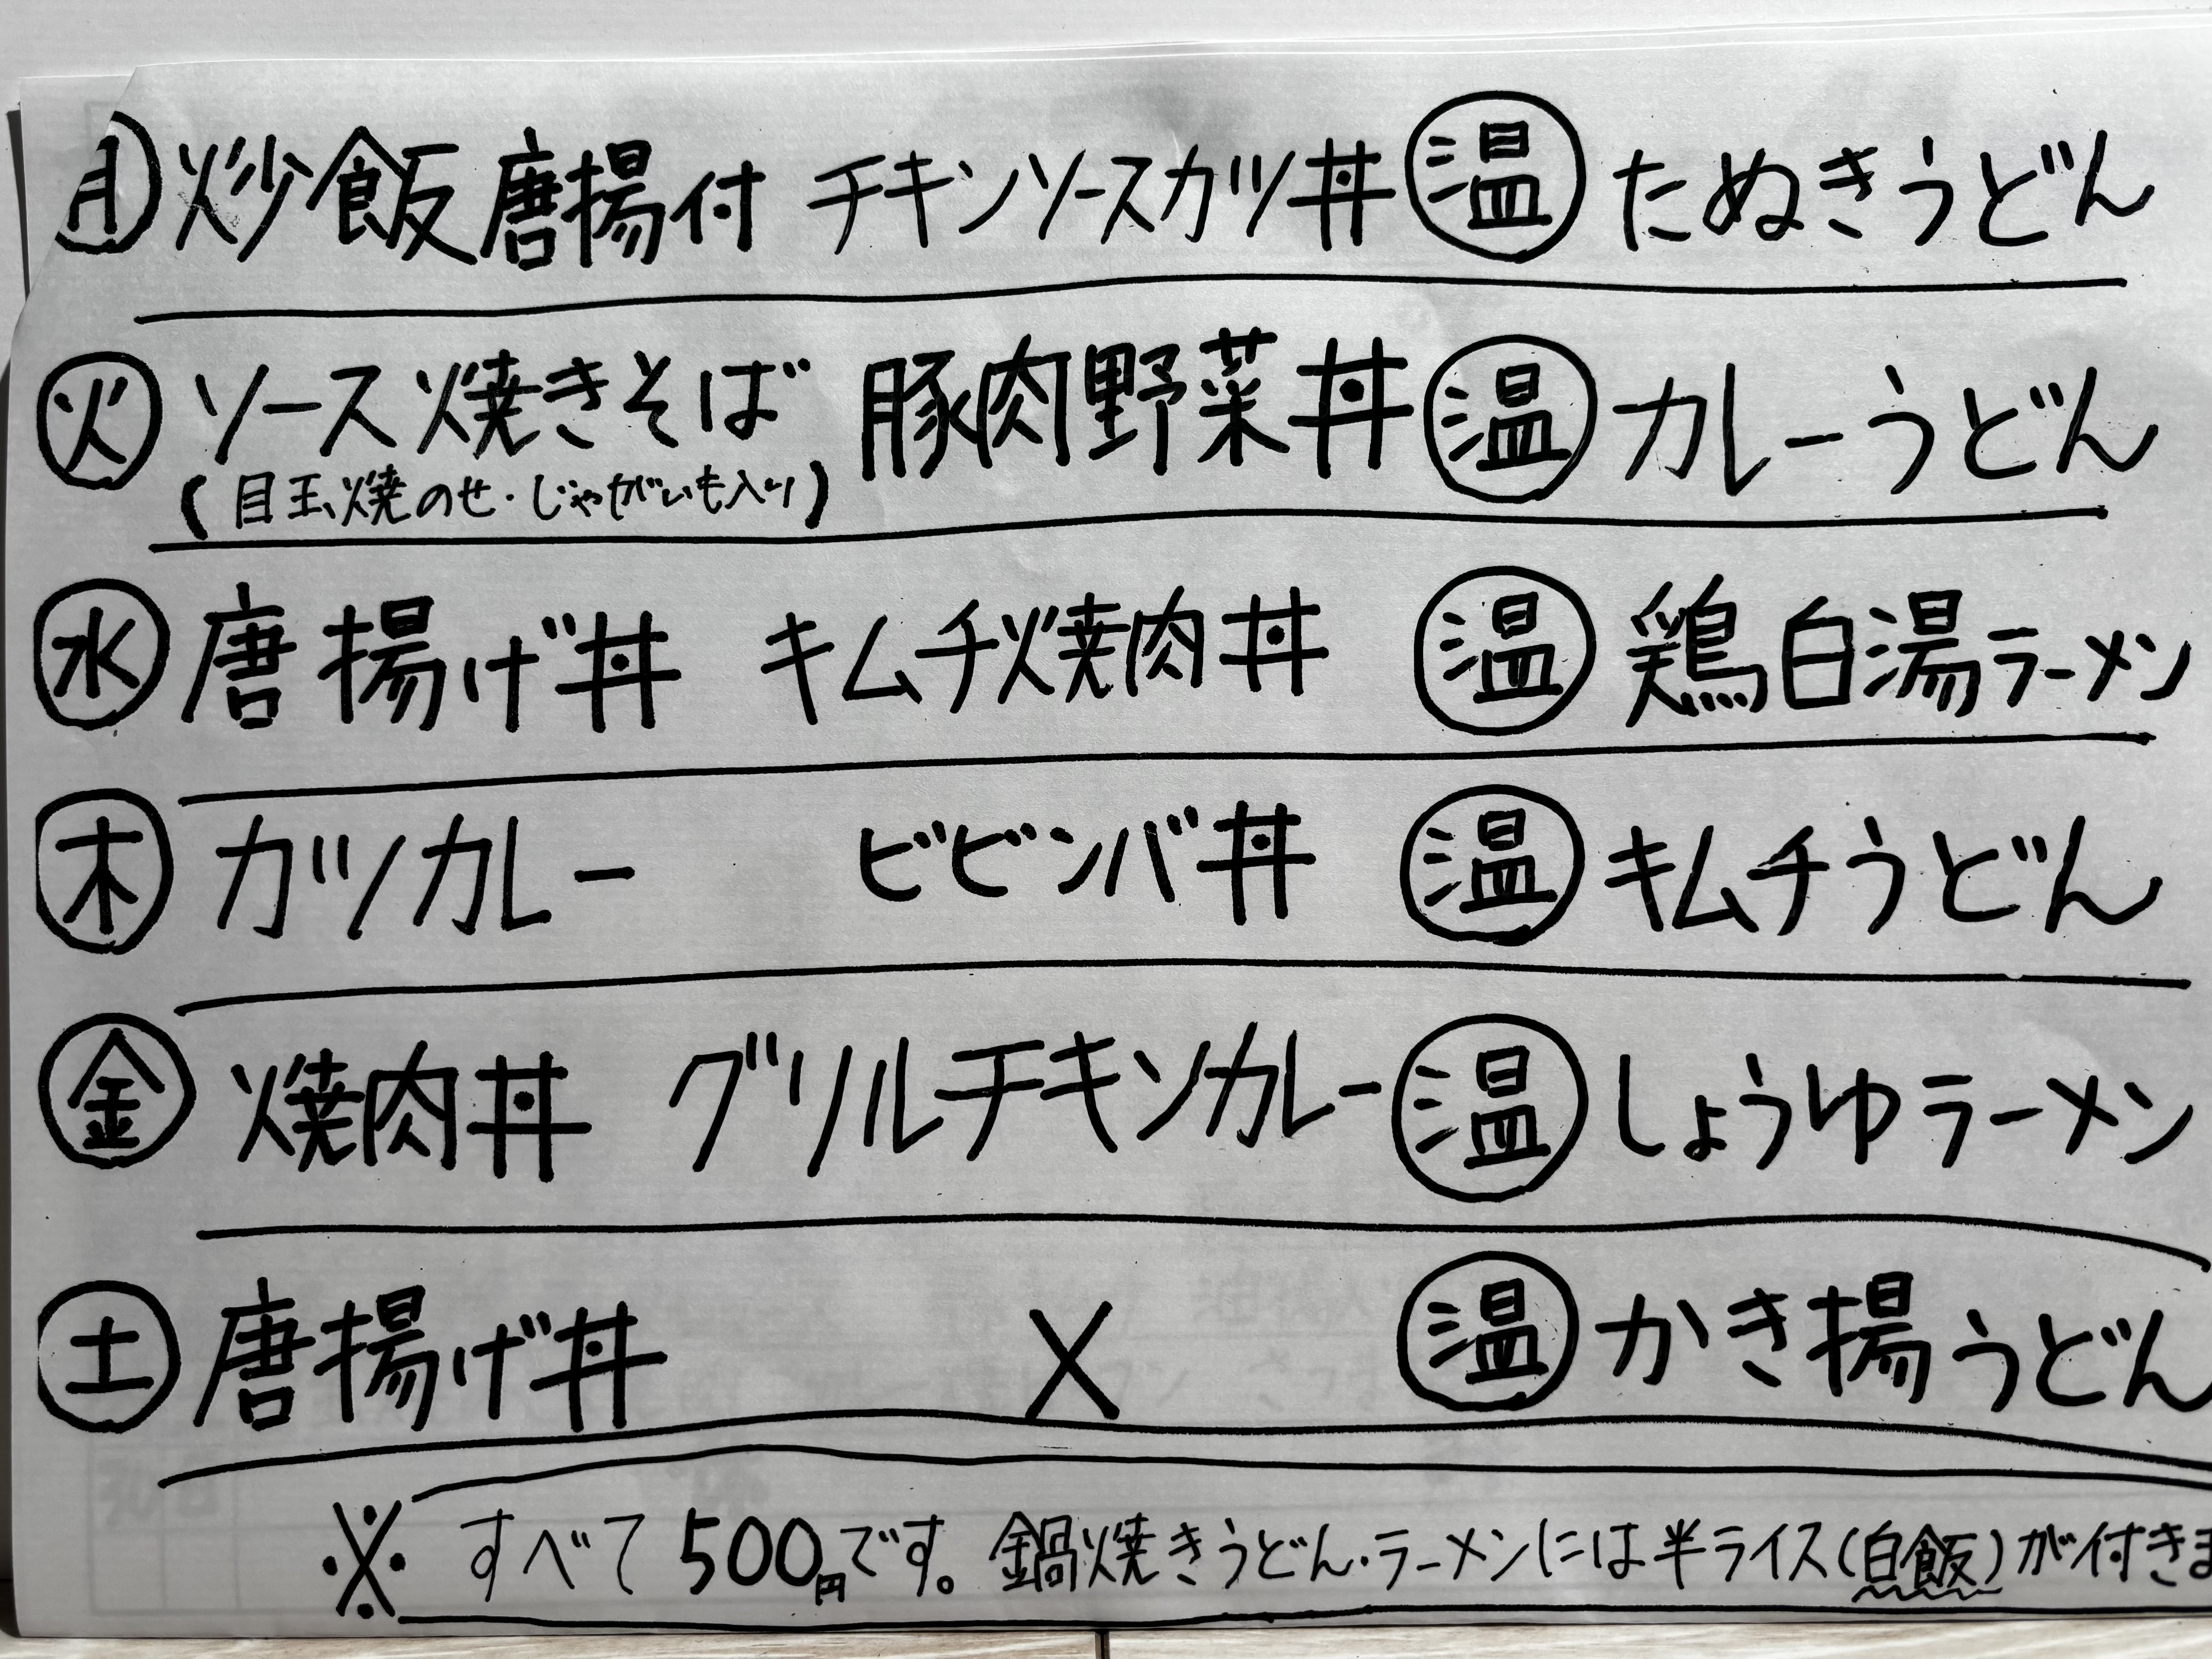 ㊊炒飯唐揚付 チキンソースカツ丼 温 たぬきうどん
㊋ソース焼きそば 豚肉野菜丼 温 カレーうどん
(目玉焼のせ・じゃがいも入り)
㊌唐揚げ丼 キムチ焼肉丼 温 鶏白湯ラーメン
㊍カツカレー ビビンバ丼 温 キムチうどん
㊎焼肉丼 グリルチキンカレー 温 しょうゆラーメン
㊏唐揚げ丼 × 温 かき揚うどん
※すべて500円です。鍋焼きうどん・ラーメンには半ライス(白飯)が付きま